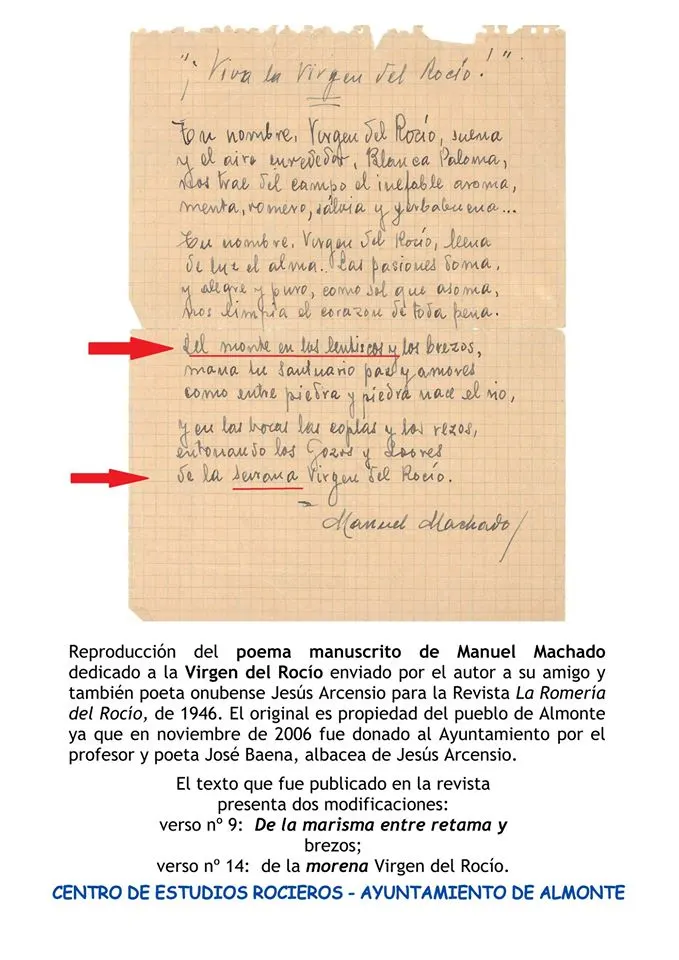 "¡Viva la Virgen del Rocío!".
Tu nombre, Virgen del Rocío, suena
y el aire enrededor, Blanca Paloma,
nos trae del campo el inefable aroma,
menta, romero, sálvia y yerbabuena...
Tu nombre, Virgen del Rocío, llena
de luz el alma.. Las pasiones doma,
y alegre y puro, como sol que asoma,
nos limpia el corazón de toda pena.
Del monte en los lentiscos y los brezos,
mana tu santuario paz y amores
como entre piedra y piedra nace el río,
y en las bocas las coplas y los rezos,
entonando los Gozos y Loores
de la serrana Virgen del Rocío.
Manuel Machado
Reproducción del poema manuscrito de Manuel Machado
dedicado a la Virgen del Rocío enviado por el autor a su amigo y
también poeta onubense Jesús Arcensio para la Revista La Romería
del Rocío, de 1946. El original es propiedad del pueblo de Almonte
ya que en noviembre de 2006 fue donado al Ayuntamiento por el
profesor y poeta José Baena, albacea de Jesús Arcensio.
El texto que fue publicado en la revista
presenta dos modificaciones:
verso nº 9: De la marisma entre retama y
brezos;
verso nº 14: de la morena Virgen del Rocío.
CENTRO DE ESTUDIOS ROCIEROS - AYUNTAMIENTO DE ALMONTE